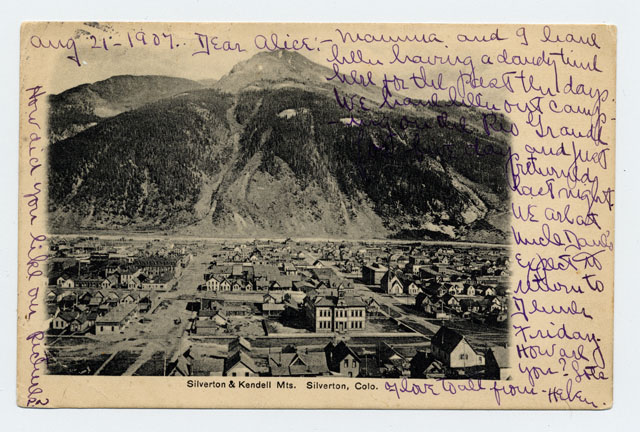 Aug 21-1907. Dear Alice:- Mamma and I have
been having a dandy time
here for the past ten days.
We have been out camp-
-ing on the Rio Grande
days and just
returned
last night
We are at
Uncle
Expect to
return to
Denver
Friday.
How are
you? Lots
of love to all from - Helen.
How did you like our
Silverton & Kendell Mts. Silverton, Colo.